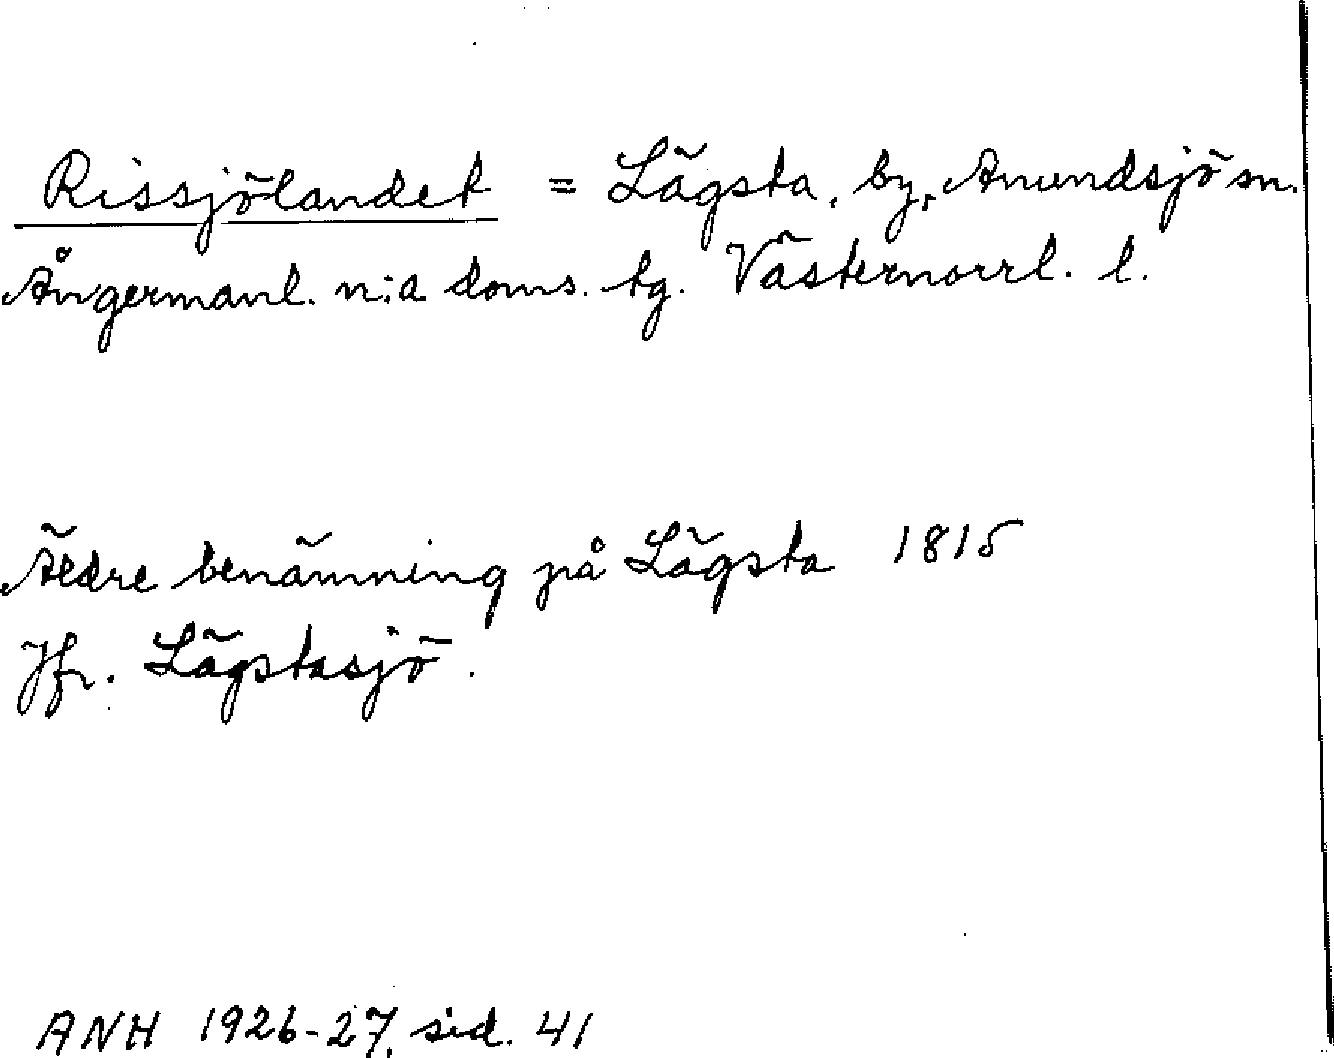 Rissjölandet = Lägsta, by, Anundsjö sn.
Ångermanl. n:a doms. tg. Västernorrl. l.
Äldre benämning på Lägsta 1815
Jfr. Lägstasjö.
ANH 1926-27, sid. 41